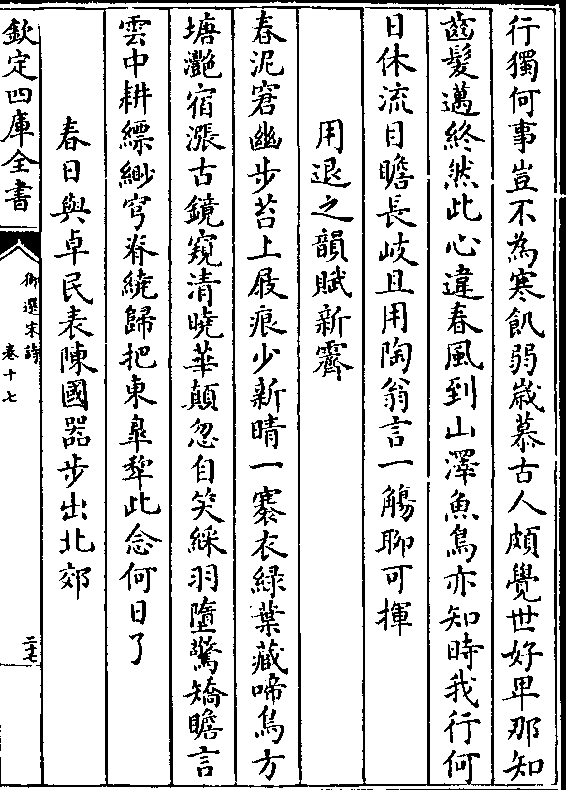 行獨何事豈不為寒飢弱嵗慕古人頗覺世好卑那知
齒髪邁終然此心違春風到山澤魚鳥亦知時我行何
日休流目瞻長岐且用陶翁言一觴聊可揮
用退之韻賦新霽
春泥窘幽步苔上屐痕少新晴一褰衣緑葉藏啼鳥方
塘灔宿漲古鏡窺清曉華顛忽自笑綵羽墮驚矯瞻言
雲中耕縹緲穹脊繞歸把東臯犂此念何日了
春日與卓民表陳國器步出北郊
欽定四庫全書
御選宋詩
卷十七
二十七